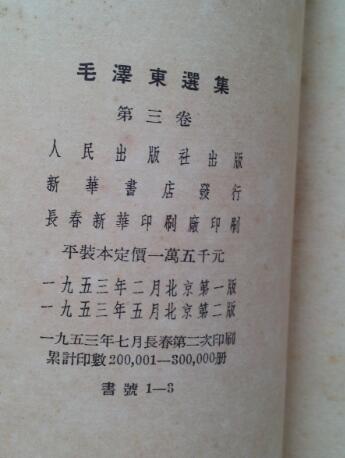 毛澤東選集
第三卷
人民出版社出版
新華書店發行
長春新華印刷廠印刷
平裝本定價一萬五千元
一九五三年二月北京第一版
一九五三年五月北京第二版
一九五三年七月長春第二次印刷
累計印數200,001—300,000册
書號1—3